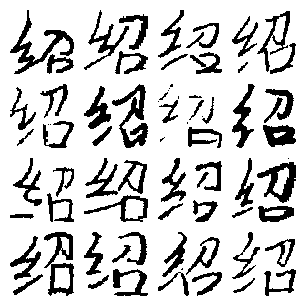 绍绍绍绍
绍绍绍绍
绍绍绍绍
绍绍绍绍